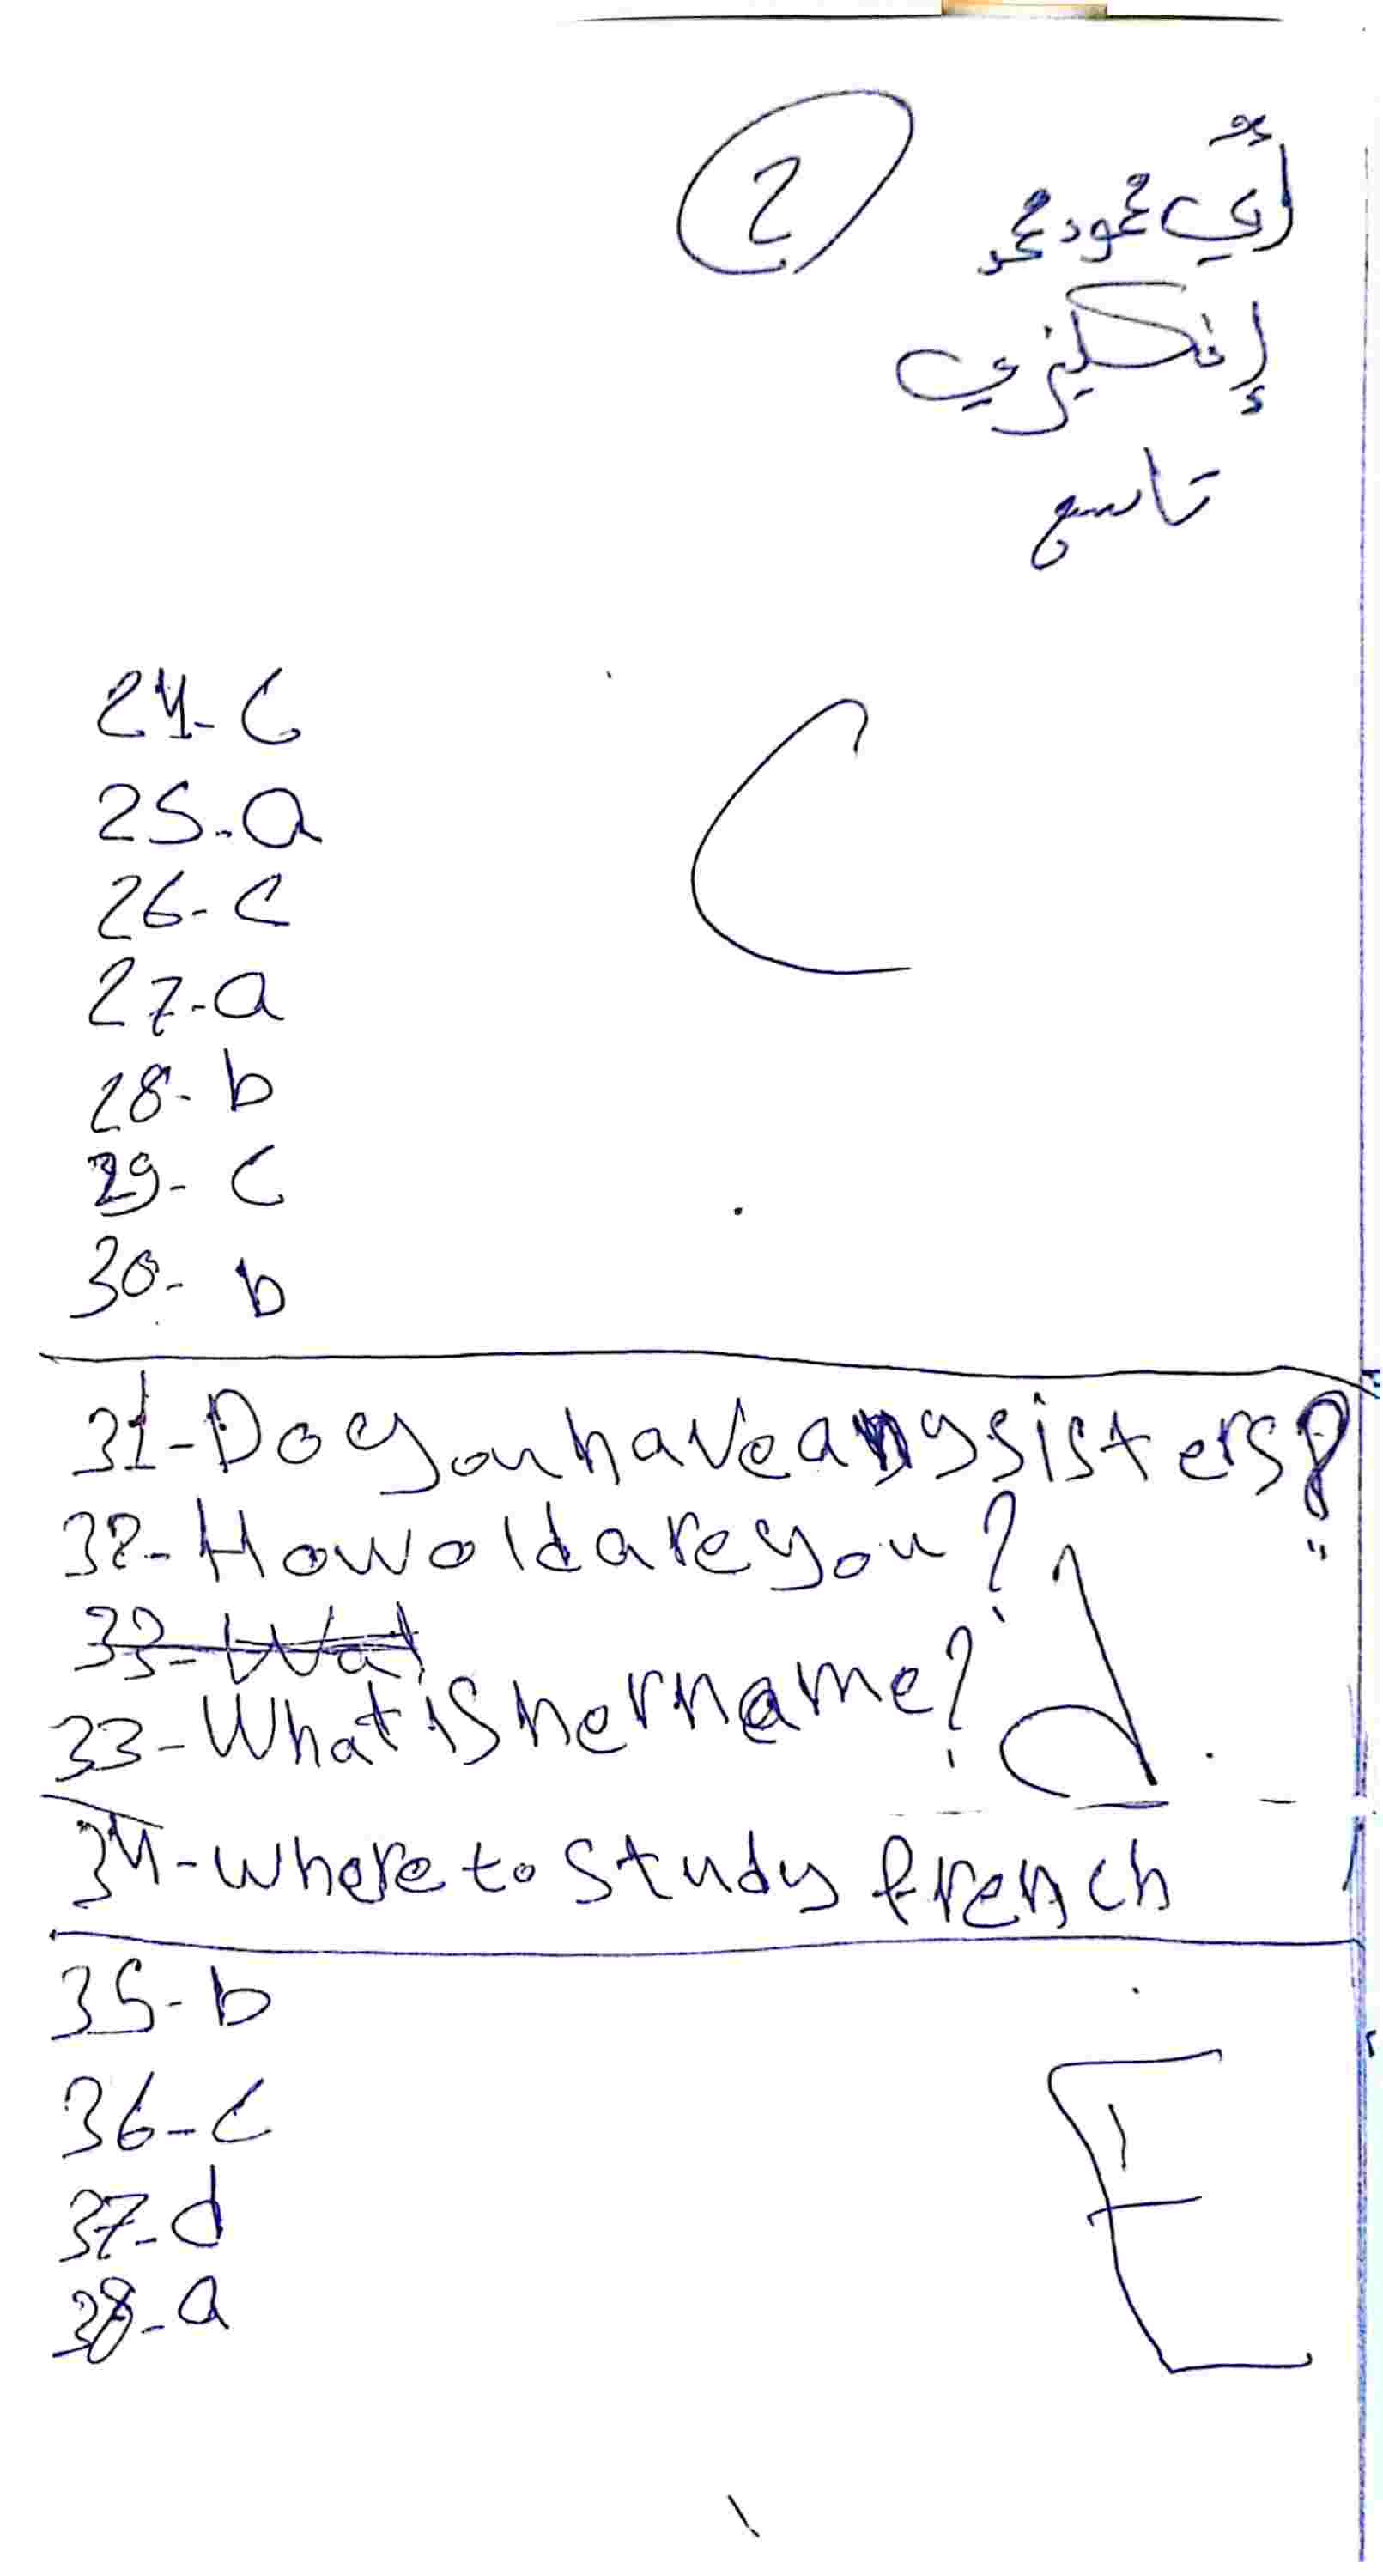 2
أُبي محمود محمد
إنكليزي
تاسع
24- C
25- a
26- c
27- a
28- b
29- c
30- b
C
31- Do you have any sisters?
32- How old are you?
33- Wat
33- What is her name?
d
34- where to study french
35- b
36- c
37- d
38- a
E